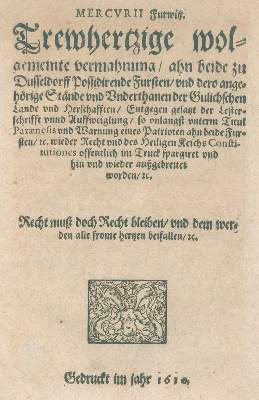 MERCVRII Furwitz.
Trewhertzige wol-
gemeinte vermahnung / ahn beide zu
Dusseldorff Possidirende Fursten / und dero ange-
hörige Stände und Vnderthanen der Gulichschen
Lande und Herschafften / Entgegen gesatzt der Lester-
schrifft unnd Auffwiglung / so onlangst unterm Titul
Parænesis und Warnung eines Patrioten ahn beide Fur-
sten / ꝛc. wieder Recht und des Heiligen Reichs Consti-
tutiones offentlich im Truck spargirt und
hin und wieder außgebreitet
worden / ꝛc.
Recht muß doch Recht bleiben / und dem wer-
den alle frome hertzen beifallen / ꝛc.
Gedruckt im jahr 1610.